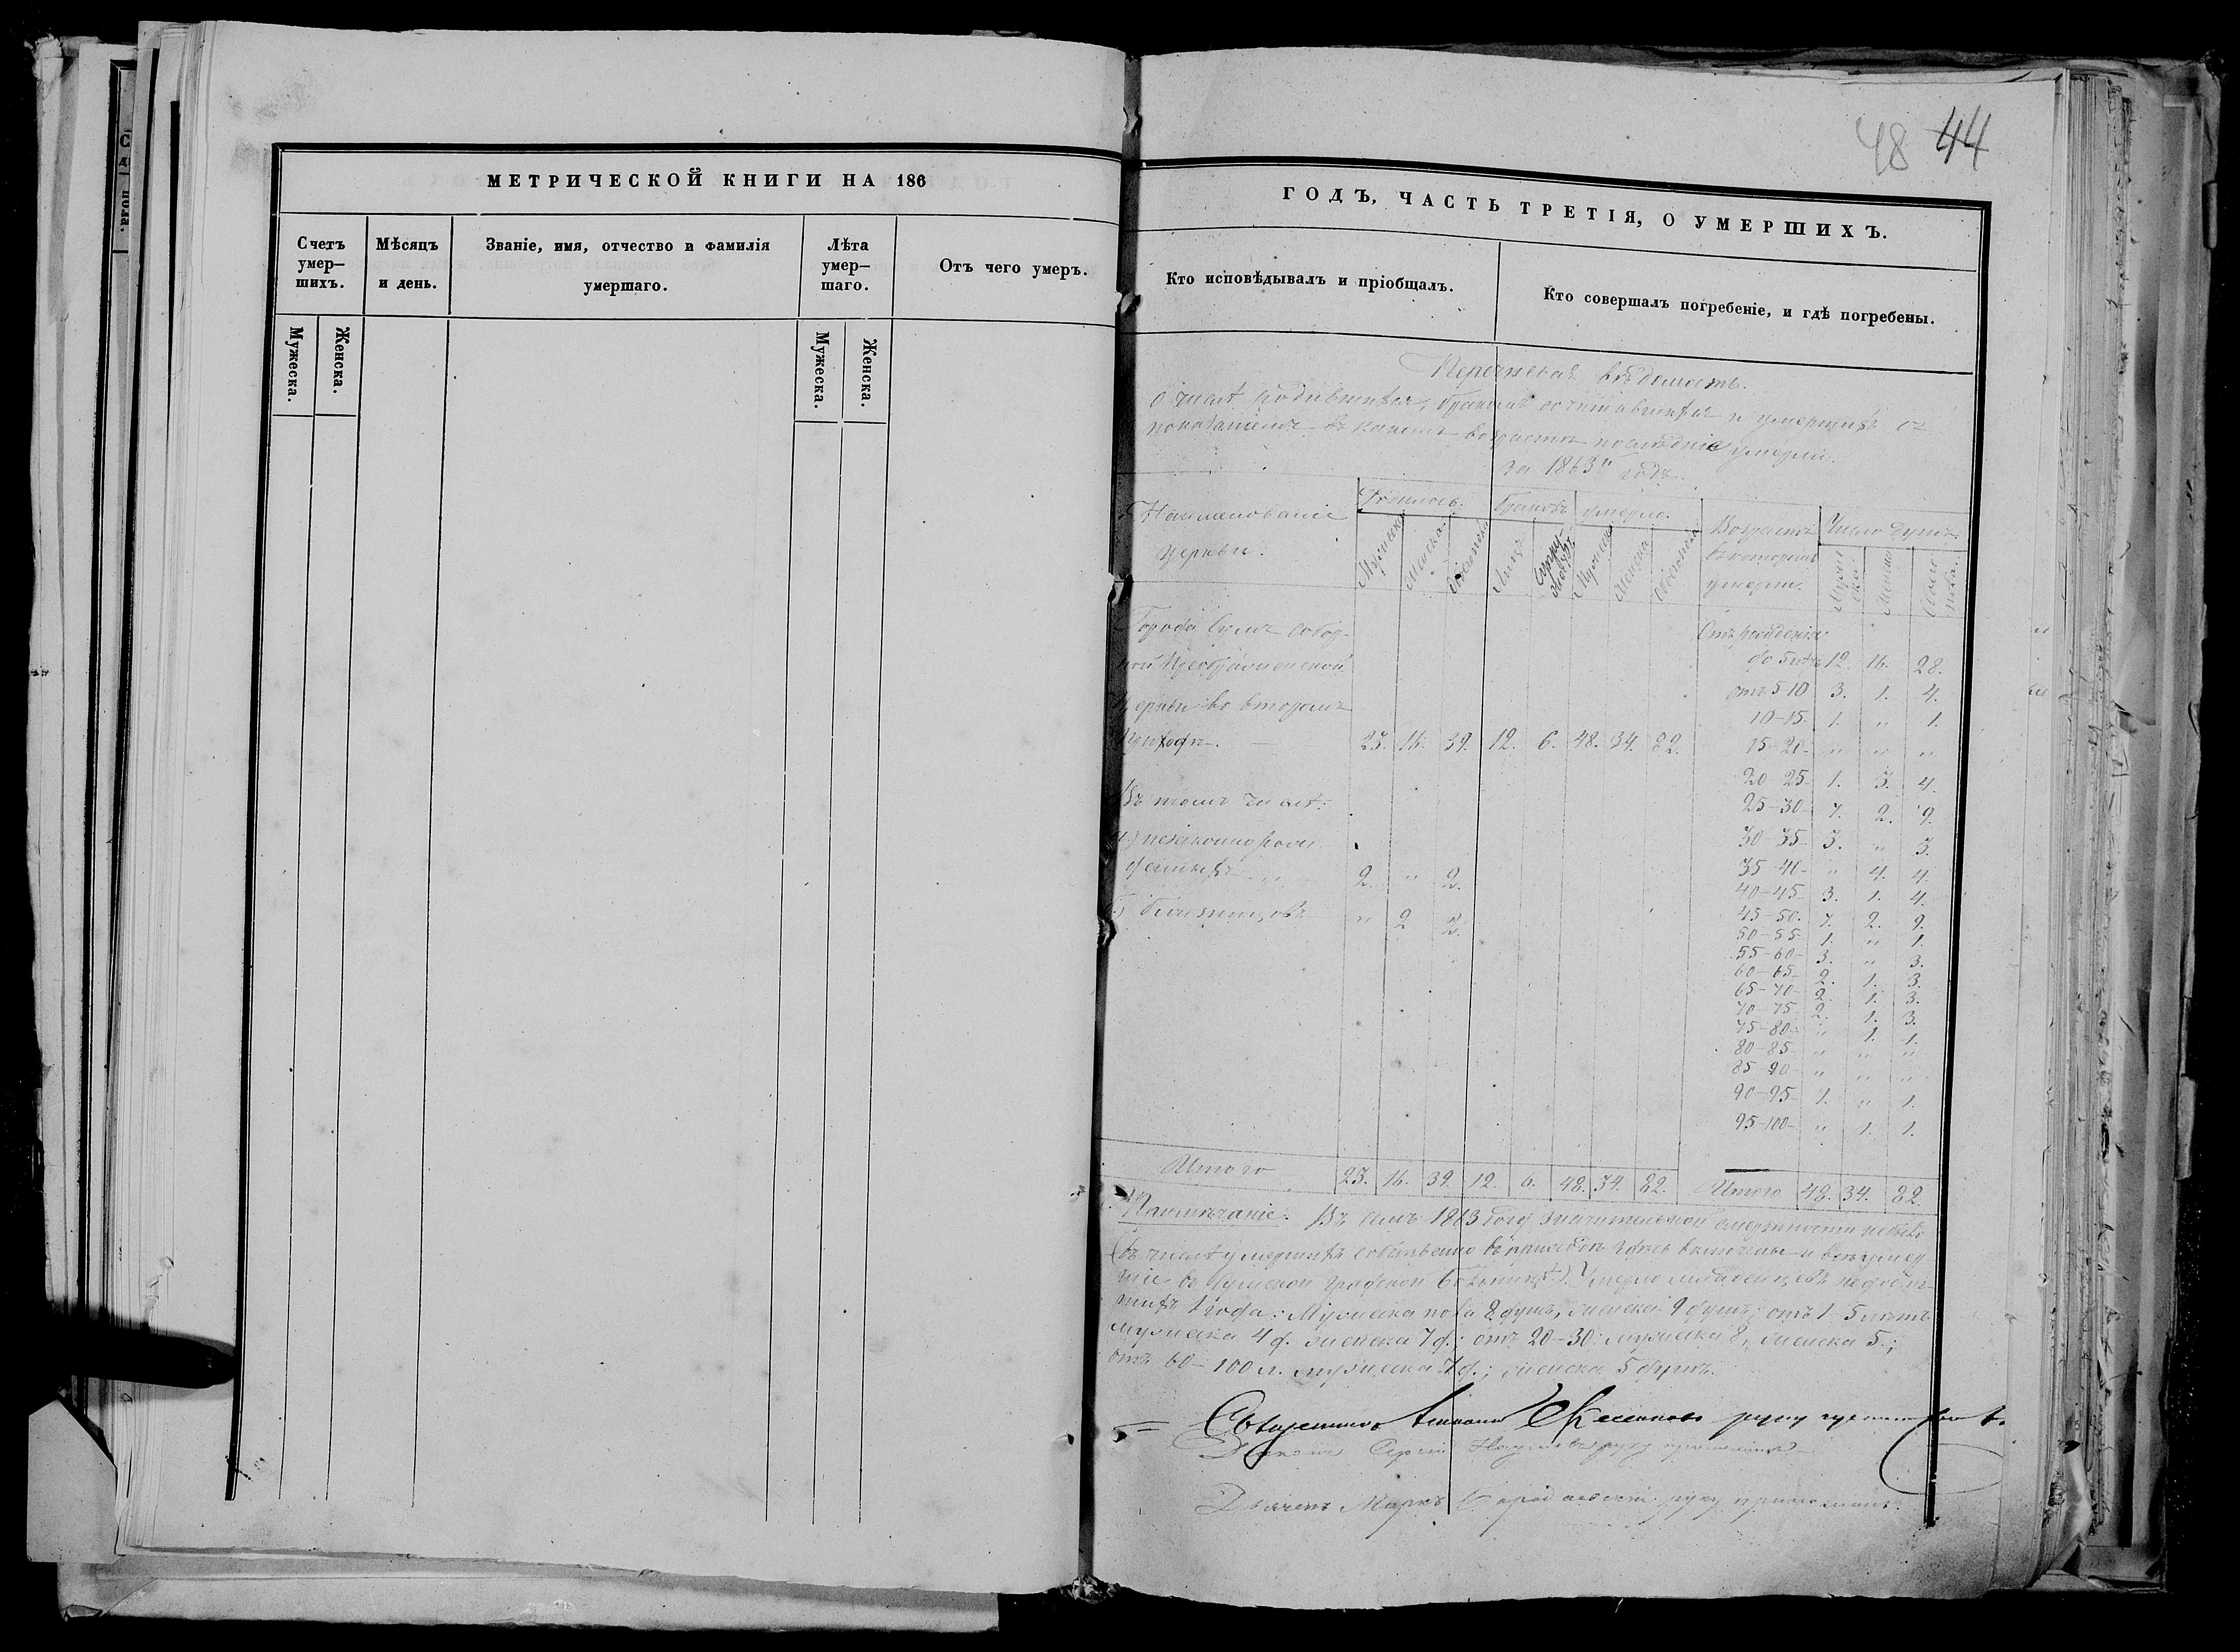 48 44
МЕТРИЧЕСКОЙ КНИГИ НА 186
Счетъ умер–шихъ.
Мужеска.
Женска.
Мѣсяцъ и день.
Званіе, имя, отчество и фамилія умершаго.
Лѣта умер–шаго.
Мужеска.
Женска.
Отъ чего умеръ.
ГОДЪ, ЧАСТЬ ТРЕТІЯ, О УМЕРШИХЪ.
Кто исповѣдывалъ и пріобщалъ.
Кто совершалъ погребеніе, и гдѣ погребены.
Перечневая вѣдомость.
О числѣ родившихся, бракомъ сочитавшихся и умершихъ съ
показаніемъ въ какомъ возрастѣ послѣдніе умерли.
за 1863й годъ.
Наименованіе церкви.
Родилось.
Браковъ
умерло.
Возрастъ въ которомъ умерли.
Число душъ.
Мужеска
Женска
Обоего пола
Лицъ
Супружествъ
Мужеска
Женска
Обоего пола
Мужеска
Женска
Обоего пола.
Города Сумъ Собор-
ной Преображенской
Церкви во второмъ
Приходѣ. — 23. 16. 39. 12. 6. 48. 34. 82.
Въ томъ числѣ:
а) незаконнорож
денныхъ „ 2. „ 2.
б) близнецовъ „ 2 2.
Отъ рожденія
до 5 лѣтъ 12. 16. 28.
отъ 5-10 3. 1. 4.
10-15. 1. „ 1.
15-20- „ „ „
20-25- 1. 3. 4.
25-30- 7. 2. 9.
30-35- 3. „ 3.
35-40- „ 4. 4.
40-45- 3. 1. 4.
45-50. 7. 2. 9.
50-55- 1. „ 1.
55-60- 3. „ 3.
60-65- 2. 1. 3.
65-70- 2. 1. 3.
70-75. 2. 1. 3.
75-80- „ 1. 1.
80-85- „ „ „
85-90- „ „ „
90-95- 1. „ 1.
95-100- „ 1. 1.
Итого 23. 16. 39. 12. 6. 48. 34. 82. Итого 48. 34. 82.
Примѣчаніе. Въ семъ 1863 году значительной смертности небыло
(въ числѣ умершихъ собственно въ приходѣ здѣсь включены и всѣ умер
шіе въ Сумской градской больницѣ). Умерло младенцевъ недостиг-
шихъ 1 года: Мужеска пола 8 душъ, женска 9 душъ; отъ 1-5 лѣтъ
мужеска 4 д. женска 7 д.; отъ 20-30: мужеска 8, женска 5.;
отъ 60-100 л. мужеска 7 д.; женска 5 душъ.
Священникъ руку приложилъ.
Діаконъ Сергій Наумовъ руку приложилъ
Дьячекъ Маркъ руку приложилъ.